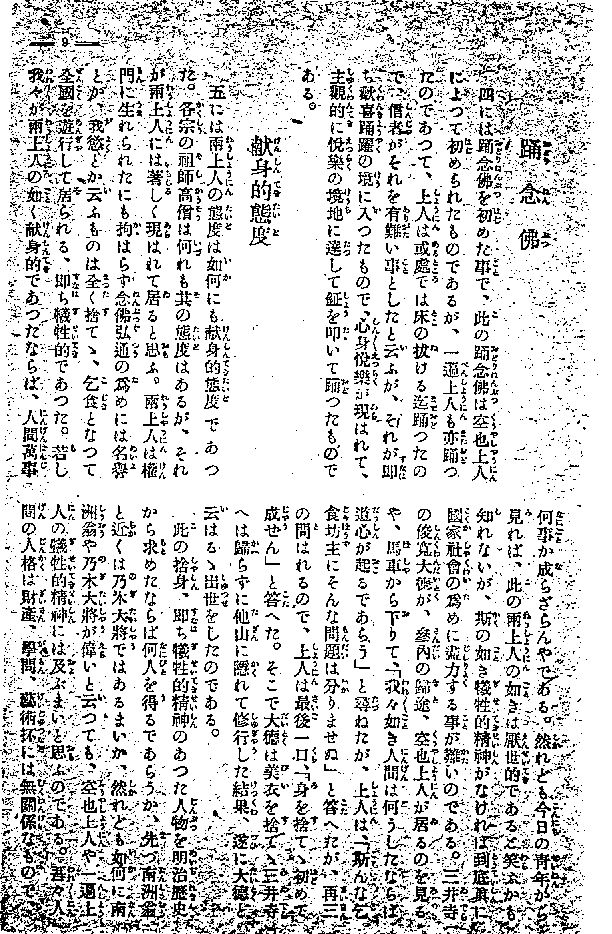 9
踊念佛
四には踊念佛を初めた事で、此の踊念佛は空也上人
によつて初められたものであるが、一遍上人も亦踊つ
たのであつて、上人は或處では床の拔ける迄踊つたの
で、信者がそれを有難い事としたと云ふが、それが即
ち歡喜踊躍の境に入つたもので、心身悅樂が現はれて、
主觀的に悅樂の境地に達して鉦を叩いて踊つたもので
ある。
献身的態度
五には兩上人の態度は如何にも献身的態度であつ
た。各宗の祖師高僧は何れも其の態度はあるが、それ
が兩上人には著しく現はれて居ると思ふ。兩上人は權
門に生れられたにも拘はらず念佛弘通の爲めには名譽
とか、我慾とか云ふものは全く捨てゝ、乞食となつて
全國を遊行して居られる、即ち犧牲的であつた。若し
我々が兩上人の如く献身的であつたならば、人間萬事
何事か成らざらんやである。然れども今日の青年から
見れば、此の兩上人の如きは厭世的であると笑ふかも
知れないが、斯の如き犧牲的精神がなければ到底眞に
國家社會の爲めに盡力する事が難いのである。三井寺
の俊寬大德が、參内の歸途、空也上人が居るのを見る
や、馬車から下りて、「我々如き人間は何うしたならば
道心が起るであらう」と尋ねたが、上人は、「斯んな乞
食坊主にそんな問題は分りませぬ」と答へたが、再三
の問はれるので、上人は最後一口、「身を捨てゝ初めて
成せん」と答へた。そこで大德は美衣を捨てゝ三井寺
へは歸らずに他山に隱れて修行した結果、遂に大德と
云はるゝ出世をしたのである。
此の捨身、即ち犧牲的精神のあつた人物を明治歷史
から求めたならば何人を得るであらうか、先づ南洲翁
と近くは乃木大將ではあるまいか、然れども如何に南
洲翁や乃木大將が偉いと云つても、空也上人や一遍上
人の犧牲的精神には及ぶまいと思ふのである。吾々人
間の人格は財產、學問、藝術抔には無關係なもので、